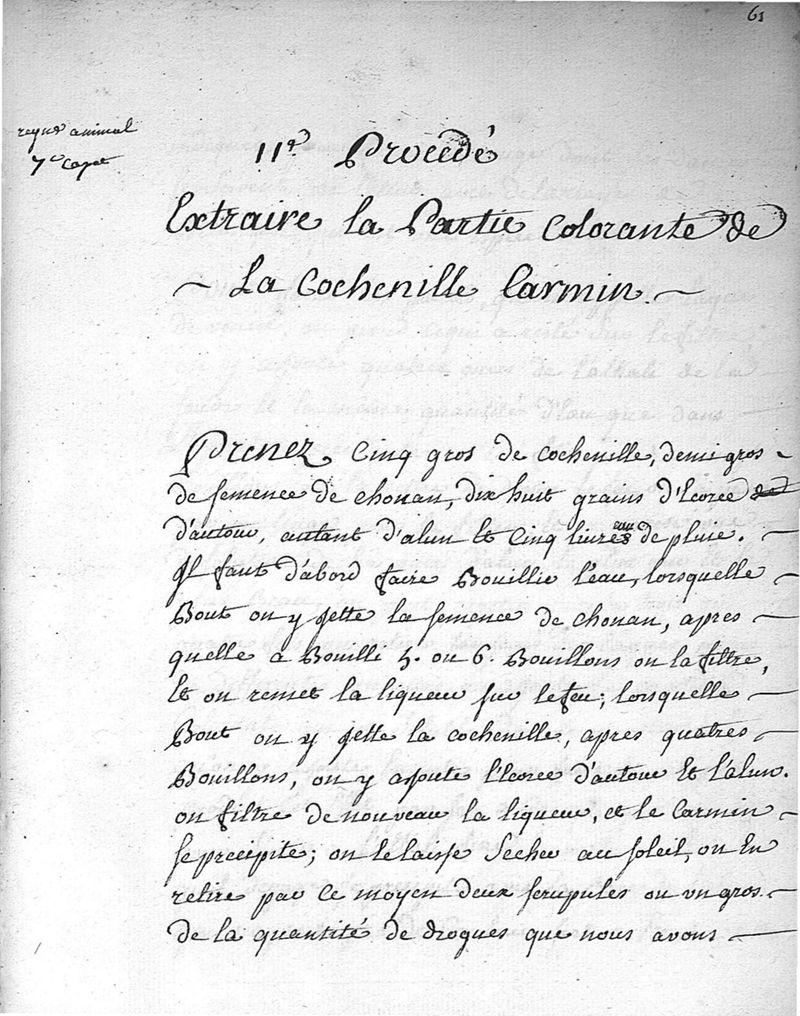 61
regne animal
7e Capse
11e Procédé
Extraire la Partie Colorante de
~ La Cochenille Carmin. ~
Prenez Cinq gros de Cochenille, demi gros
de semence de chouan, dix huit grains d'Ecorce
d'autour, autant d'alun et Cinq livres eau de pluie.
Il faut d'abord faire Bouillir l'eau, lorsquelle
Bout on y jette la semence de chouan, apres
quelle a Bouilli 5. ou 6. Bouillons on la filtre,
Et on remet la liqueur sur le feu; lorsquelle
Bout on y jette la cochenille, apres quatres
Bouillons, on y ajoute l'Ecorce d'autour Et l'alun.
on filtre de nouveau la liqueur, et le Carmin
se precipite; on le laisse Secher au soleil, on En
retire par ce moyen deux scrupules ou un gros
de la quantité de drogues que nous avons